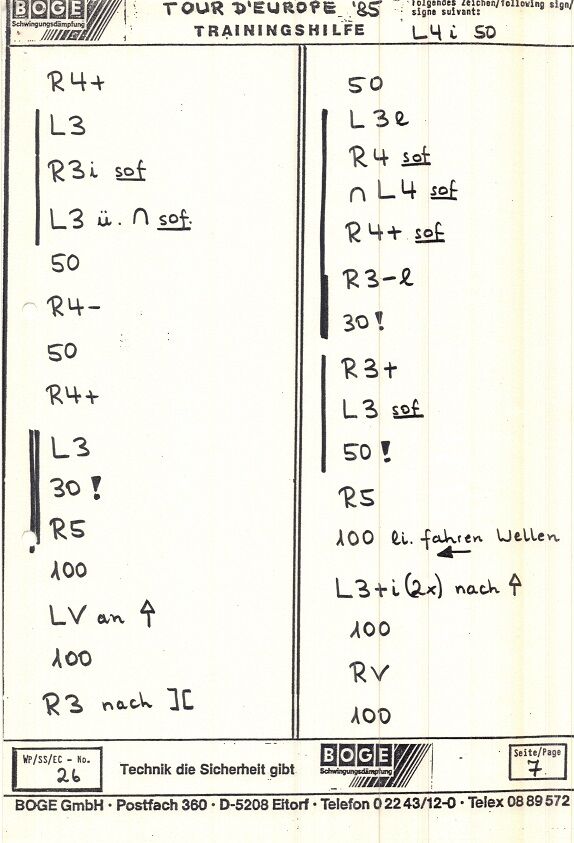 BOGE
Schwingungsdämpfung
TOUR D'EUROPE '85
TRAININGSHILFE
folgendes Zeichen/following sign/
signe suivant:
L4i 50
R4+
L3
R3i sof
L3 ü. ∩ sof.
50
R4-
50
R4+
L3
30!
R5
100
LV an ↑
100
R3 nach ][
50
L3l
R4 sof
∩ L4 sof
R4+ sof
R3-l
30!
R3+
L3 sof
50!
R5
100 li. fahren Wellen
←
L3+i(2x) nach ↑
100
RV
100
WP/SS/EC - No.
26
Technik die Sicherheit gibt
BOGE
Schwingungsdämpfung
Seite/Page
7
BOGE GmbH · Postfach 360 · D-5208 Eitorf · Telefon 0 22 43/12-0 · Telex 08 89 572